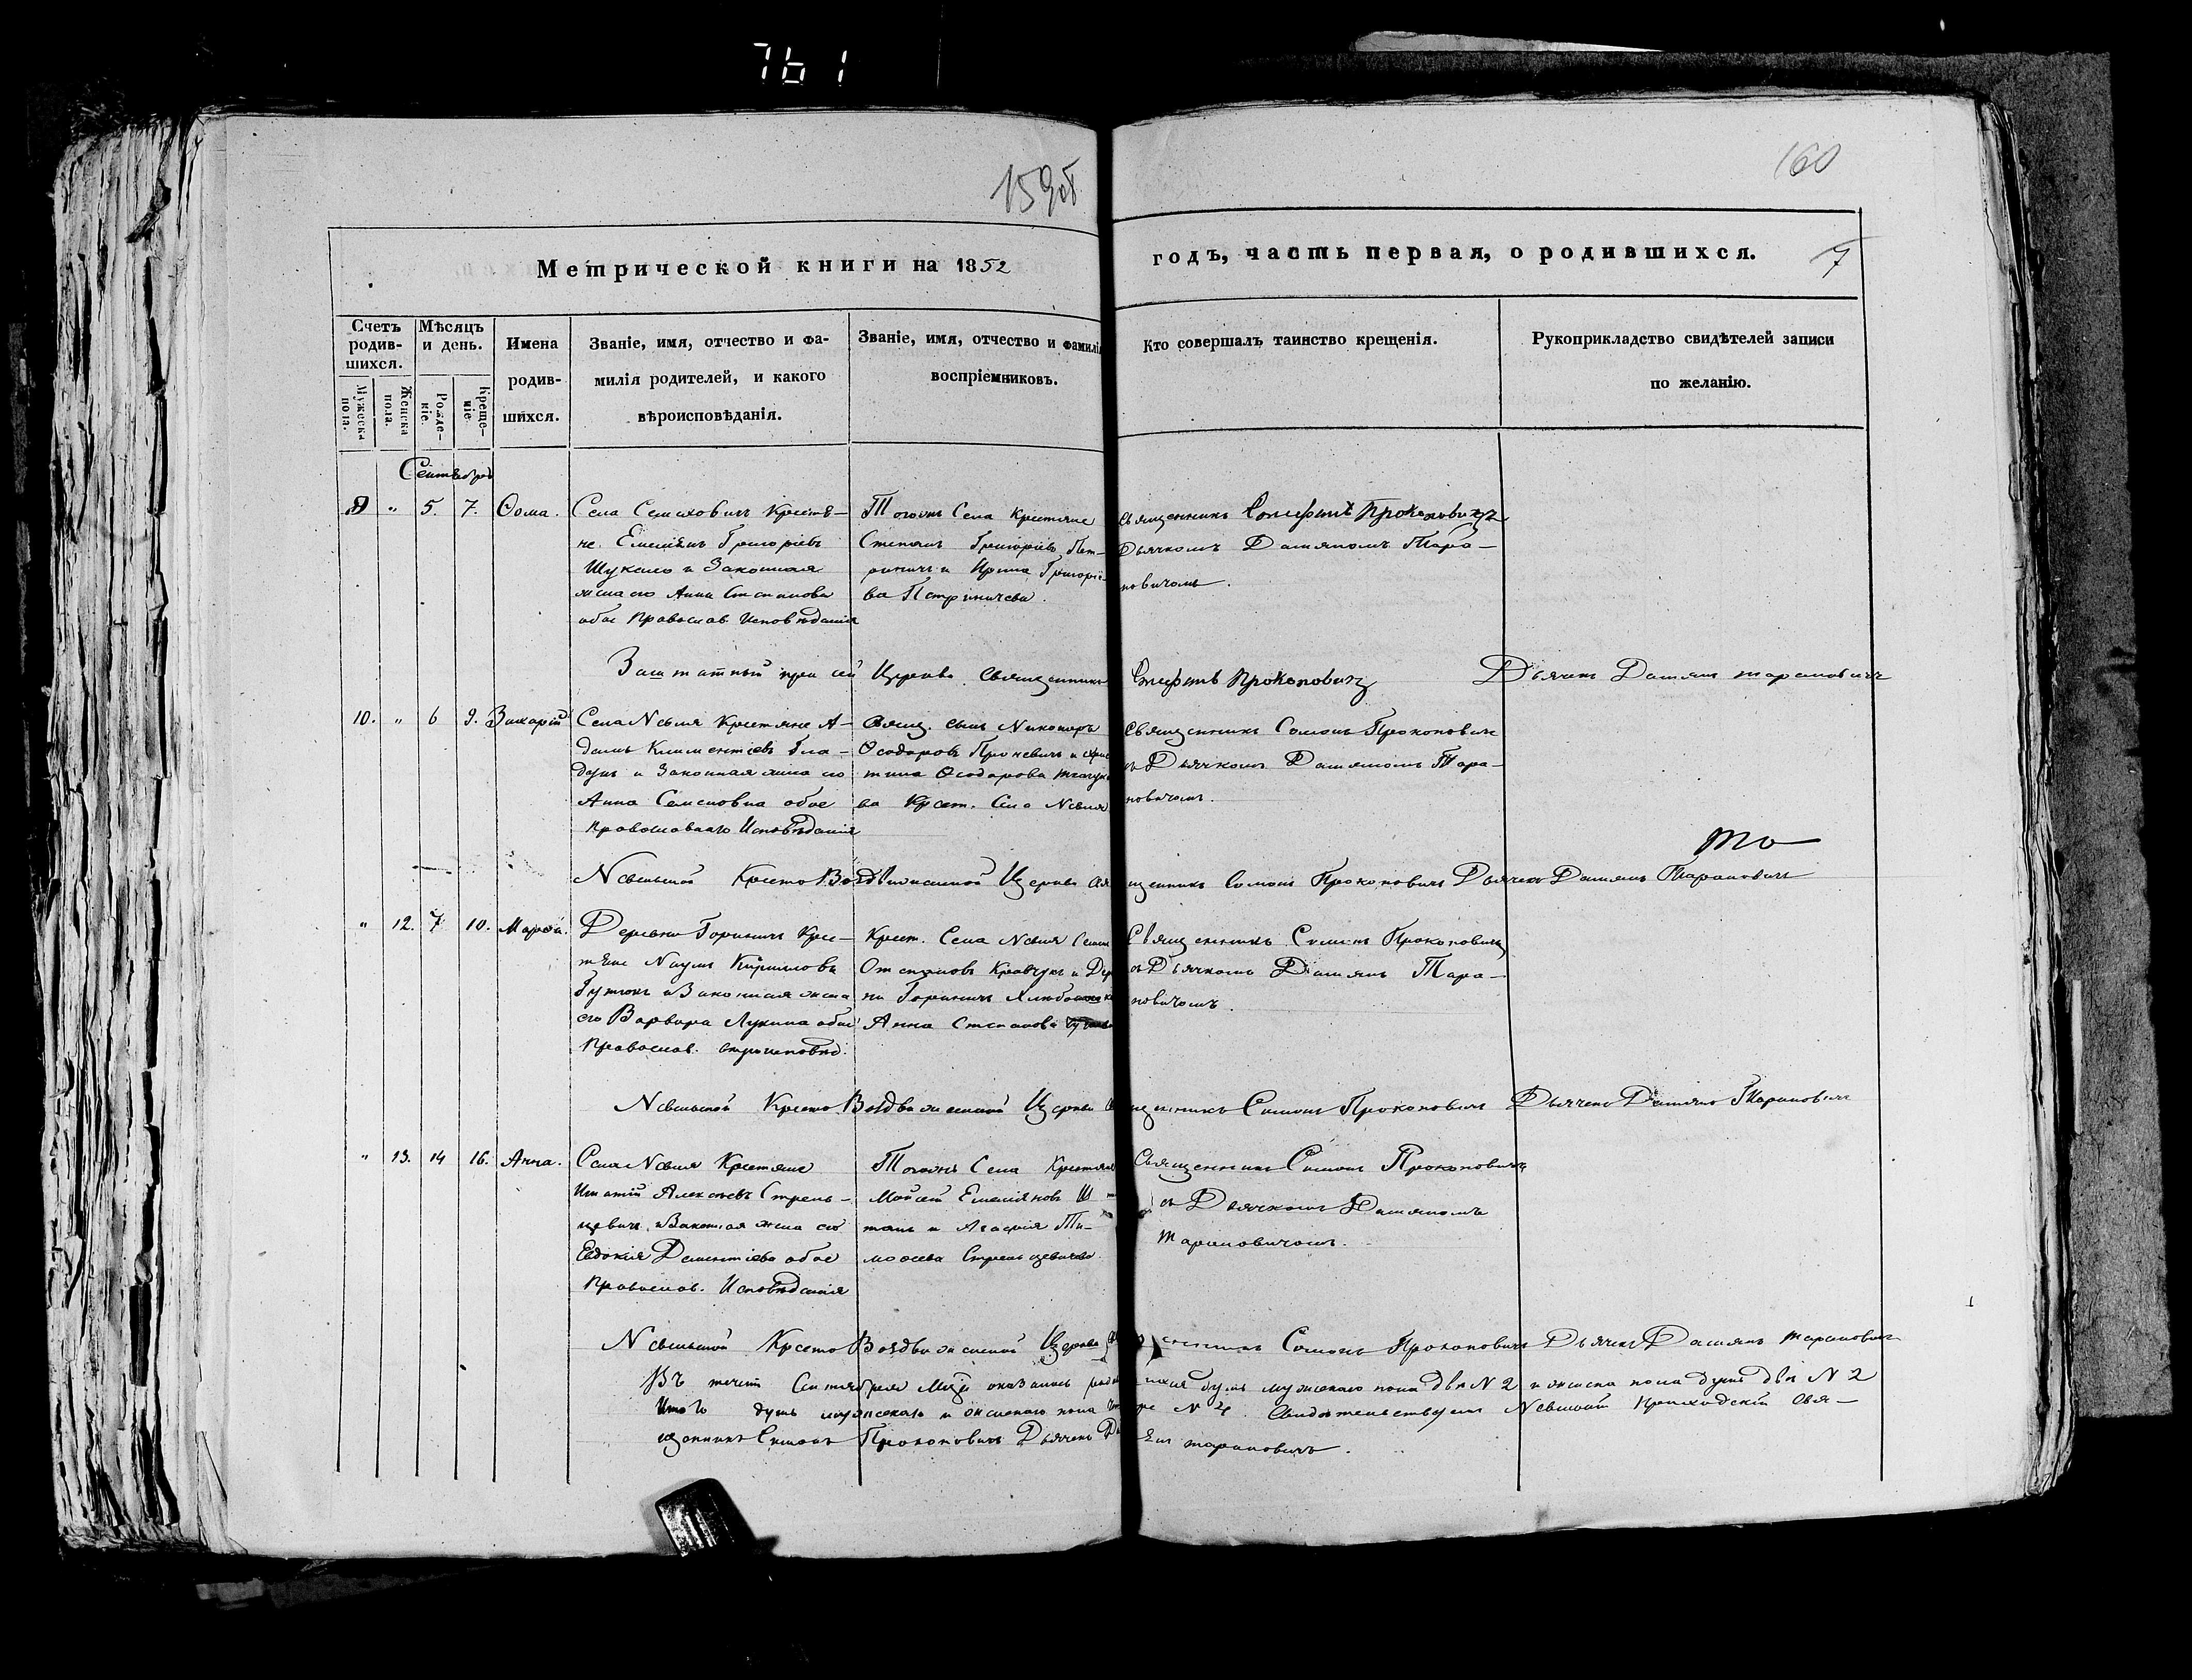 761
159об
160
Метрической книги на 1852
годъ, часть первая, о родившихся.
7
Счетъ родив-шихся.
Мужеска пола.
Женска пола.
Мѣсяцъ и день.
Рожде-ніе.
Креще-ніе.
Имена
родив-
шихся.
Званіе, имя, отчество и фа-
милія родителей, и какого
вѣроисповѣданія.
Званіе, имя, отчество и фамилія
воспріемниковъ.
Кто совершалъ таинство крещенія.
Рукоприкладство свидѣтелей записи
по желанію.
Сентябрь
9 " 5. 7. Ѳома.
Села Семиховичъ Крестя-
не Емеліянъ Григоріевъ
и Законная
жена его Анна Степанова
обое Православ. Исповѣданія
Тогожъ Села Крестяне
Стефанъ Григоріевъ Пет-
риничъ и Ирина Григоріе-
ва Петриничева.
Священникъ Прокоповичъ
Дьячкомъ Даміяномъ Тара-
новичомъ.
Заштатный при сей Церкви Священникъ Прокоповичъ Дьячекъ Даміянъ Тарановичъ
10. " 6 9. Захарій
Села Невля Крестяне А-
дамъ Климентіевъ Гла-
дунъ и Законная жена его
Анна Семеновна обое
Православнаго Исповѣданія
Свящ. сынъ Никоноръ
Ѳеодоровъ и Хрис
тина Ѳеодорова
ва Крест. Села Невля
Священникъ Симонъ Прокоповичъ
съ Дьячкомъ Даміяномъ Тара-
новичомъ.
то
Невельской Кресто Воздвиженской Церкви Священникъ Симонъ Прокоповичъ Дьячекъ Даміянъ Тарановичъ
" 12. 7 10. Марѳа.
Деревни Гориничъ Крес-
тяне Наумъ Кирилловъ
и Законная жена
его Варвара Лукина обое
Православ. исповѣд.
Крест. Села Невля Семен
Степановъ Кравчукъ и Дер
ни Гориничъ
Анна Степанова
Священникъ Симонъ Прокоповичъ
съ Дьячкомъ Даміянъ Тара-
новичомъ.
Невельской Кресто Воздвиженской Церкви Священникъ Симонъ Прокоповичъ Дьячекъ Даміянъ Тарановичъ
" 13. 14 16. Анна.
Села Невля Крестяне
Игнатій Алексѣевъ Стрель-
цевичъ и Законная жена его
Евдокія Дементіева обое
Православ. Исповѣданія
Тогожъ Села Крестяне
Мойсей Емеліяновъ
и Агафія Ти-
моѳеева Стрельцевичева.
Священникъ Симонъ Прокоповичъ
съ Дьячкомъ Даміяномъ
Тарановичомъ.
Невельской Кресто Воздвиженской Церкви Священникъ Симонъ Прокоповичъ Дьячекъ Даміянъ Тарановичъ
Въ течен. Сентября Мця оказалось родившихся душъ мужескаго пола двѣ N 2 и женска пола душъ двѣ N 2
Итого душъ мужескаго и женскаго пола четыре N 4. Свидѣтельствуемъ Невельской Приходскій Свя-
щенникъ Симонъ Прокоповичъ Дьячекъ Даміянъ Тарановичъ.